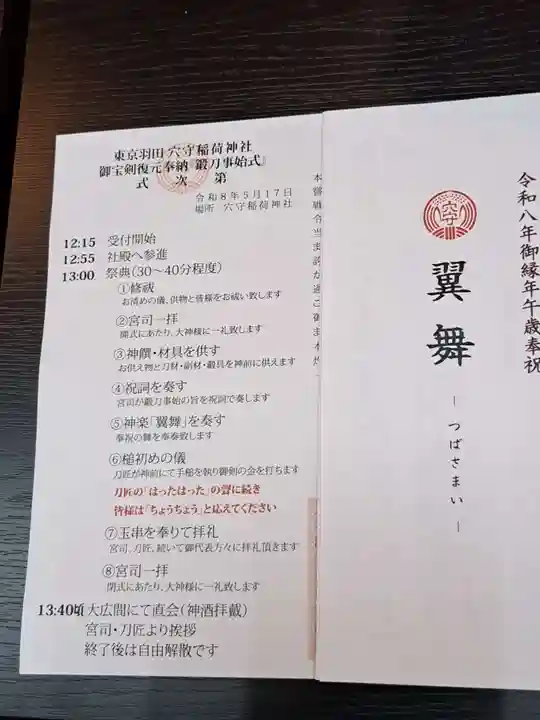 東京羽田 穴守稲荷神社
御宝剣復元奉納『鍛刀事始式』
式 次 第
令和8年5月17日
場所 穴守稲荷神社
12:15 受付開始
12:55 社殿へ参進
13:00 祭典(30～40分程度)
①修祓
お清めの儀、供物と皆様をお祓い致します
②宮司一拝
開式にあたり、大神様に一礼致します
③神饌・材具を供す
お供え物と刀材・副材・鍛具を神前に供えます
④祝詞を奏す
宮司が鍛刀事始の旨を祝詞で奏します
⑤神楽「翼舞」を奏す
奉祝の舞を奉奏致します
⑥槌初めの儀
刀匠が神前にて手槌を執り御剣の会を打ちます
刀匠の「はったはった」の聲に続き
皆様は「ちょうちょう」と応えてください
⑦玉串を奉りて拝礼
宮司、刀匠、続いて御代表方々に拝礼頂きます
⑧宮司一拝
閉式にあたり、大神様に一礼致します
13:40頃 大広間にて直会(神酒拝戴)
宮司・刀匠より挨拶
終了後は自由解散です
令和八年御縁年午歳奉祝
翼舞
－つばさまい－